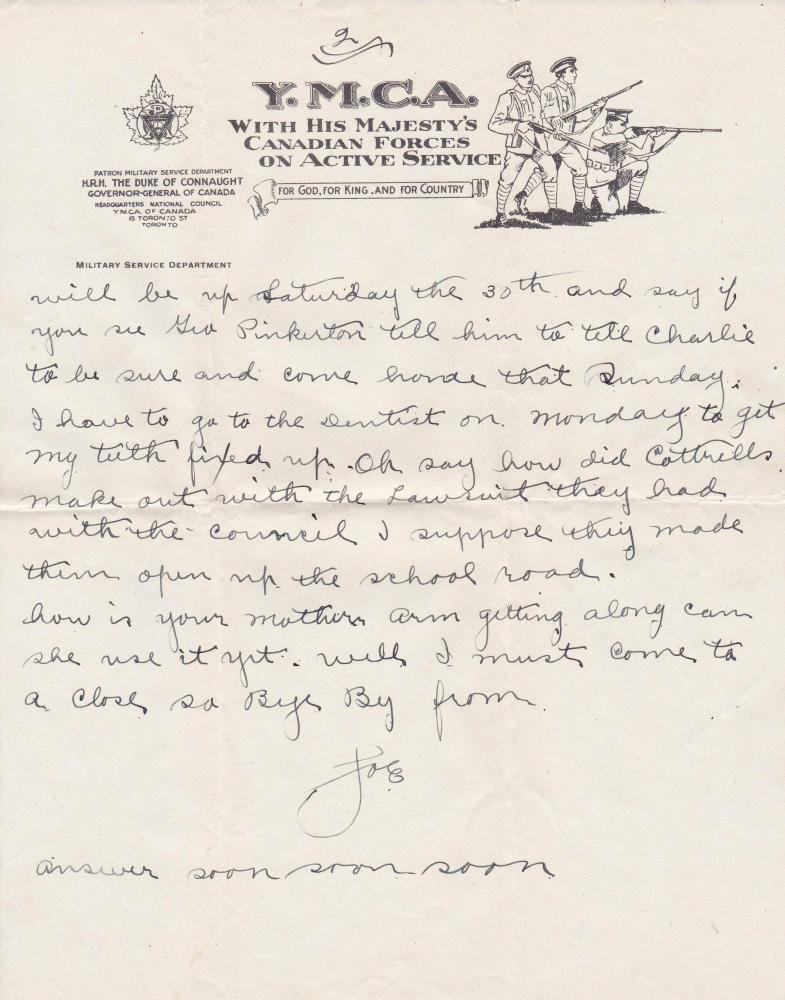 2
Y.M.C.A.
WITH HIS MAJESTY'S
CANADIAN FORCES
ON ACTIVE SERVICE
FOR GOD, FOR KING, AND FOR COUNTRY
PATRON MILITARY SERVICE DEPARTMENT
H.R.H. THE DUKE OF CONNAUGHT
GOVERNOR-GENERAL OF CANADA
HEADQUARTERS NATIONAL COUNCIL
Y.M.C.A. OF CANADA
15 TORONTO ST
TORONTO
MILITARY SERVICE DEPARTMENT
will be up Saturday the 30th and say if
you see Geo Pinkerton tell him to tell Charlie
to be sure and come home that Sunday.
I have to go to the Dentist on Monday to get
my teeth fixed up. Oh say how did Cottrells
make out with the Lawsuit they had
with the council I suppose they made
them open up the school road.
how is your mothers arm getting along can
she use it yet. well I must come to
a close so Bye By from
Joe
answer soon soon soon